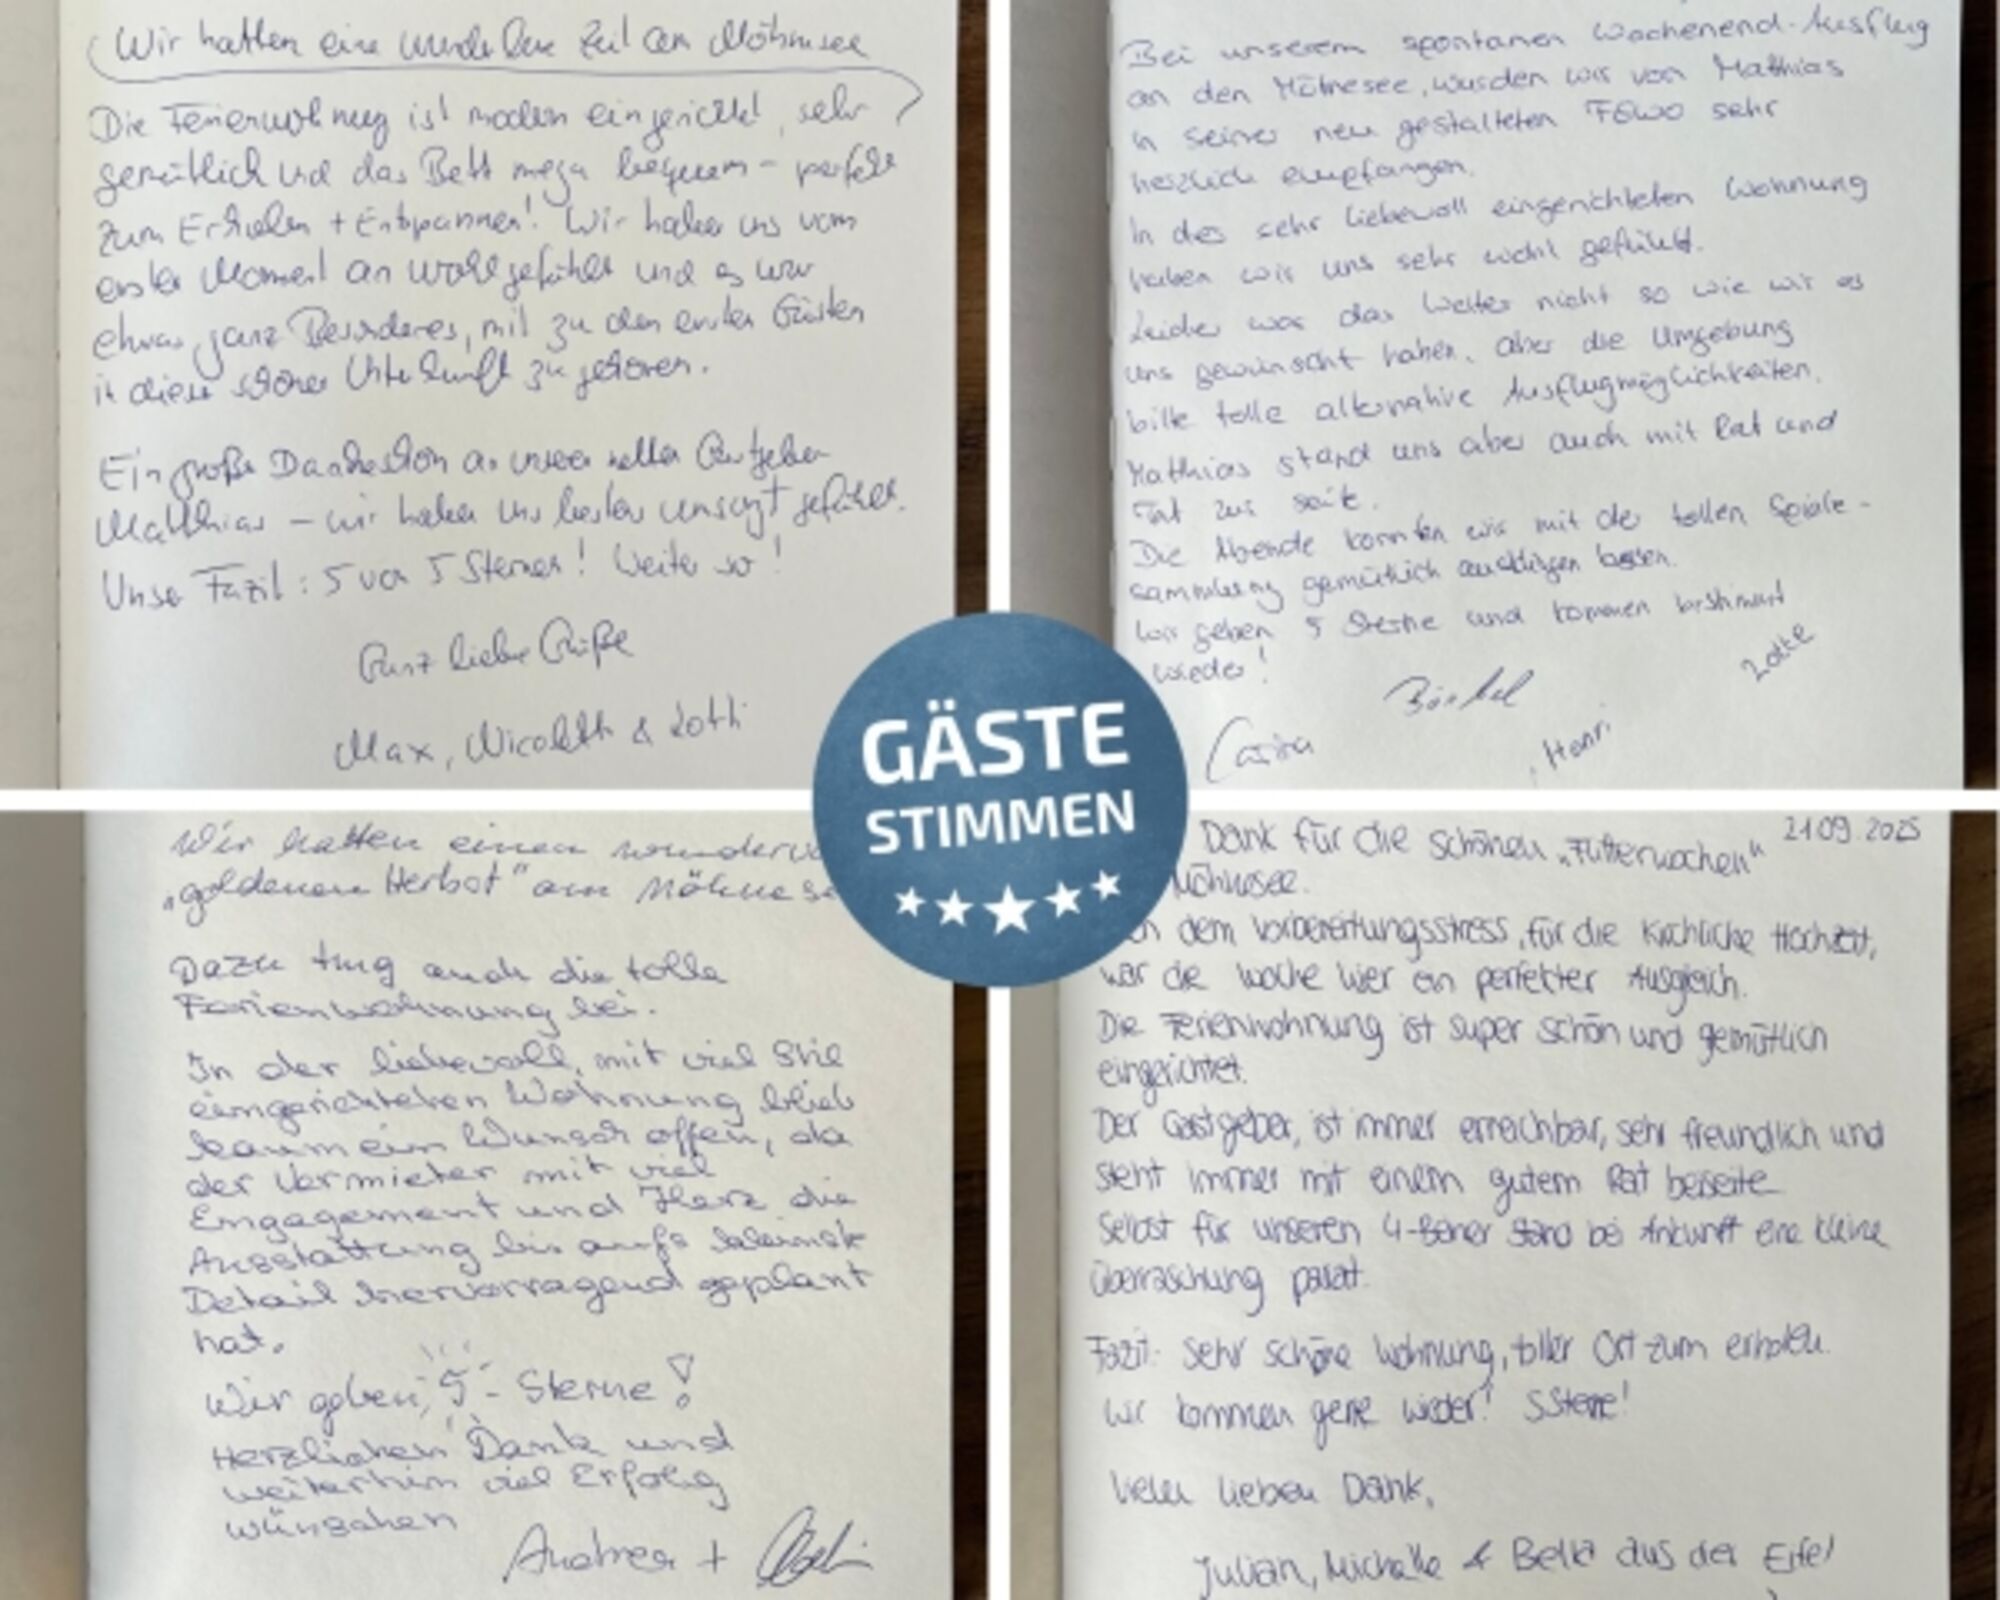 Wir hatten eine wunderbare Zeit am Möhnesee
Die Ferienwohnung ist modern eingerichtet, sehr
gemütlich und das Bett mega bequem – perfekt
zum Erholen + Entspannen! Wir haben uns vom
ersten Moment an wohlgefühlt und es war
etwas ganz Besonderes, mit zu den ersten Gästen
in dieser schönen Unterkunft zu gehören.
Ein großes Dankeschön an unseren netten Gastgeber
Matthias – wir haben uns bestens umsorgt gefühlt.
Unser Fazit: 5 von 5 Sternen! Weiter so!
Ganz liebe Grüße
Max, Nicoleth & Lotti
Bei unserem spontanen Wochenend-Ausflug
an den Möhnesee, wurden wir von Matthias
in seiner neu gestalteten FeWo sehr
herzlich empfangen.
In der sehr liebevoll eingerichteten Wohnung
haben wir uns sehr wohl gefühlt.
Leider war das Wetter nicht so wie wir es
uns gewünscht haben, aber die Umgebung
bitte tolle alternative Ausflugmöglichkeiten.
Matthias stand uns aber auch mit Rat und
Tat zur Seite.
Die Abende konnten wir mit der tollen Spiele-
sammlung gemütlich ausklingen lassen.
Wir geben 5 Sterne und kommen bestimmt
wieder!
Lotte
Carina
, Henri
GÄSTE
STIMMEN
Wir hatten einen
„goldenen Herbst“ am
Dazu trug auch die tolle
Ferienwohnung bei.
In der liebevoll, mit viel Stil
eingerichteten Wohnung blieb
kaum ein Wunsch offen, da
der Vermieter mit viel
Engagement und Herz die
Ausstattung bis aufs kleinste
Detail hervorragend geplant
hat.
Wir geben 5-Sterne!
Herzlichen Dank und
weiterhin viel Erfolg
wünschen
Andrea +
21.09.2025
Dank für die schönen „Flitterwochen“
Möhnesee.
dem Vorbereitungsstress, für die kirchliche Hochzeit,
war die Woche hier ein perfekter Ausgleich.
Die Ferienwohnung ist super schön und gemütlich
eingerichtet.
Der Gastgeber, ist immer erreichbar, sehr freundlich und
steht immer mit einem gutem Rat beiseite
Selbst für unseren 4-Beiner stand bei Ankunft eine kleine
Überraschung parat.
Fazit: Sehr schöne Wohnung, toller Ort zum erholen.
Wir kommen gerne wieder! 5 Sterne!
Vielen lieben Dank,
Julian, Michelle & Bella aus der Eifel